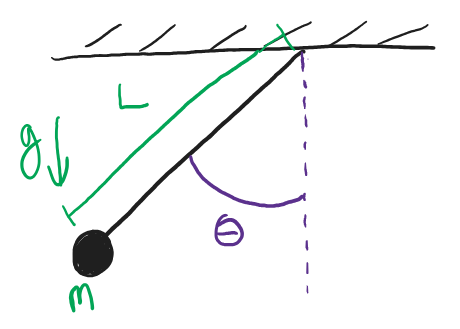 L
g
θ
m